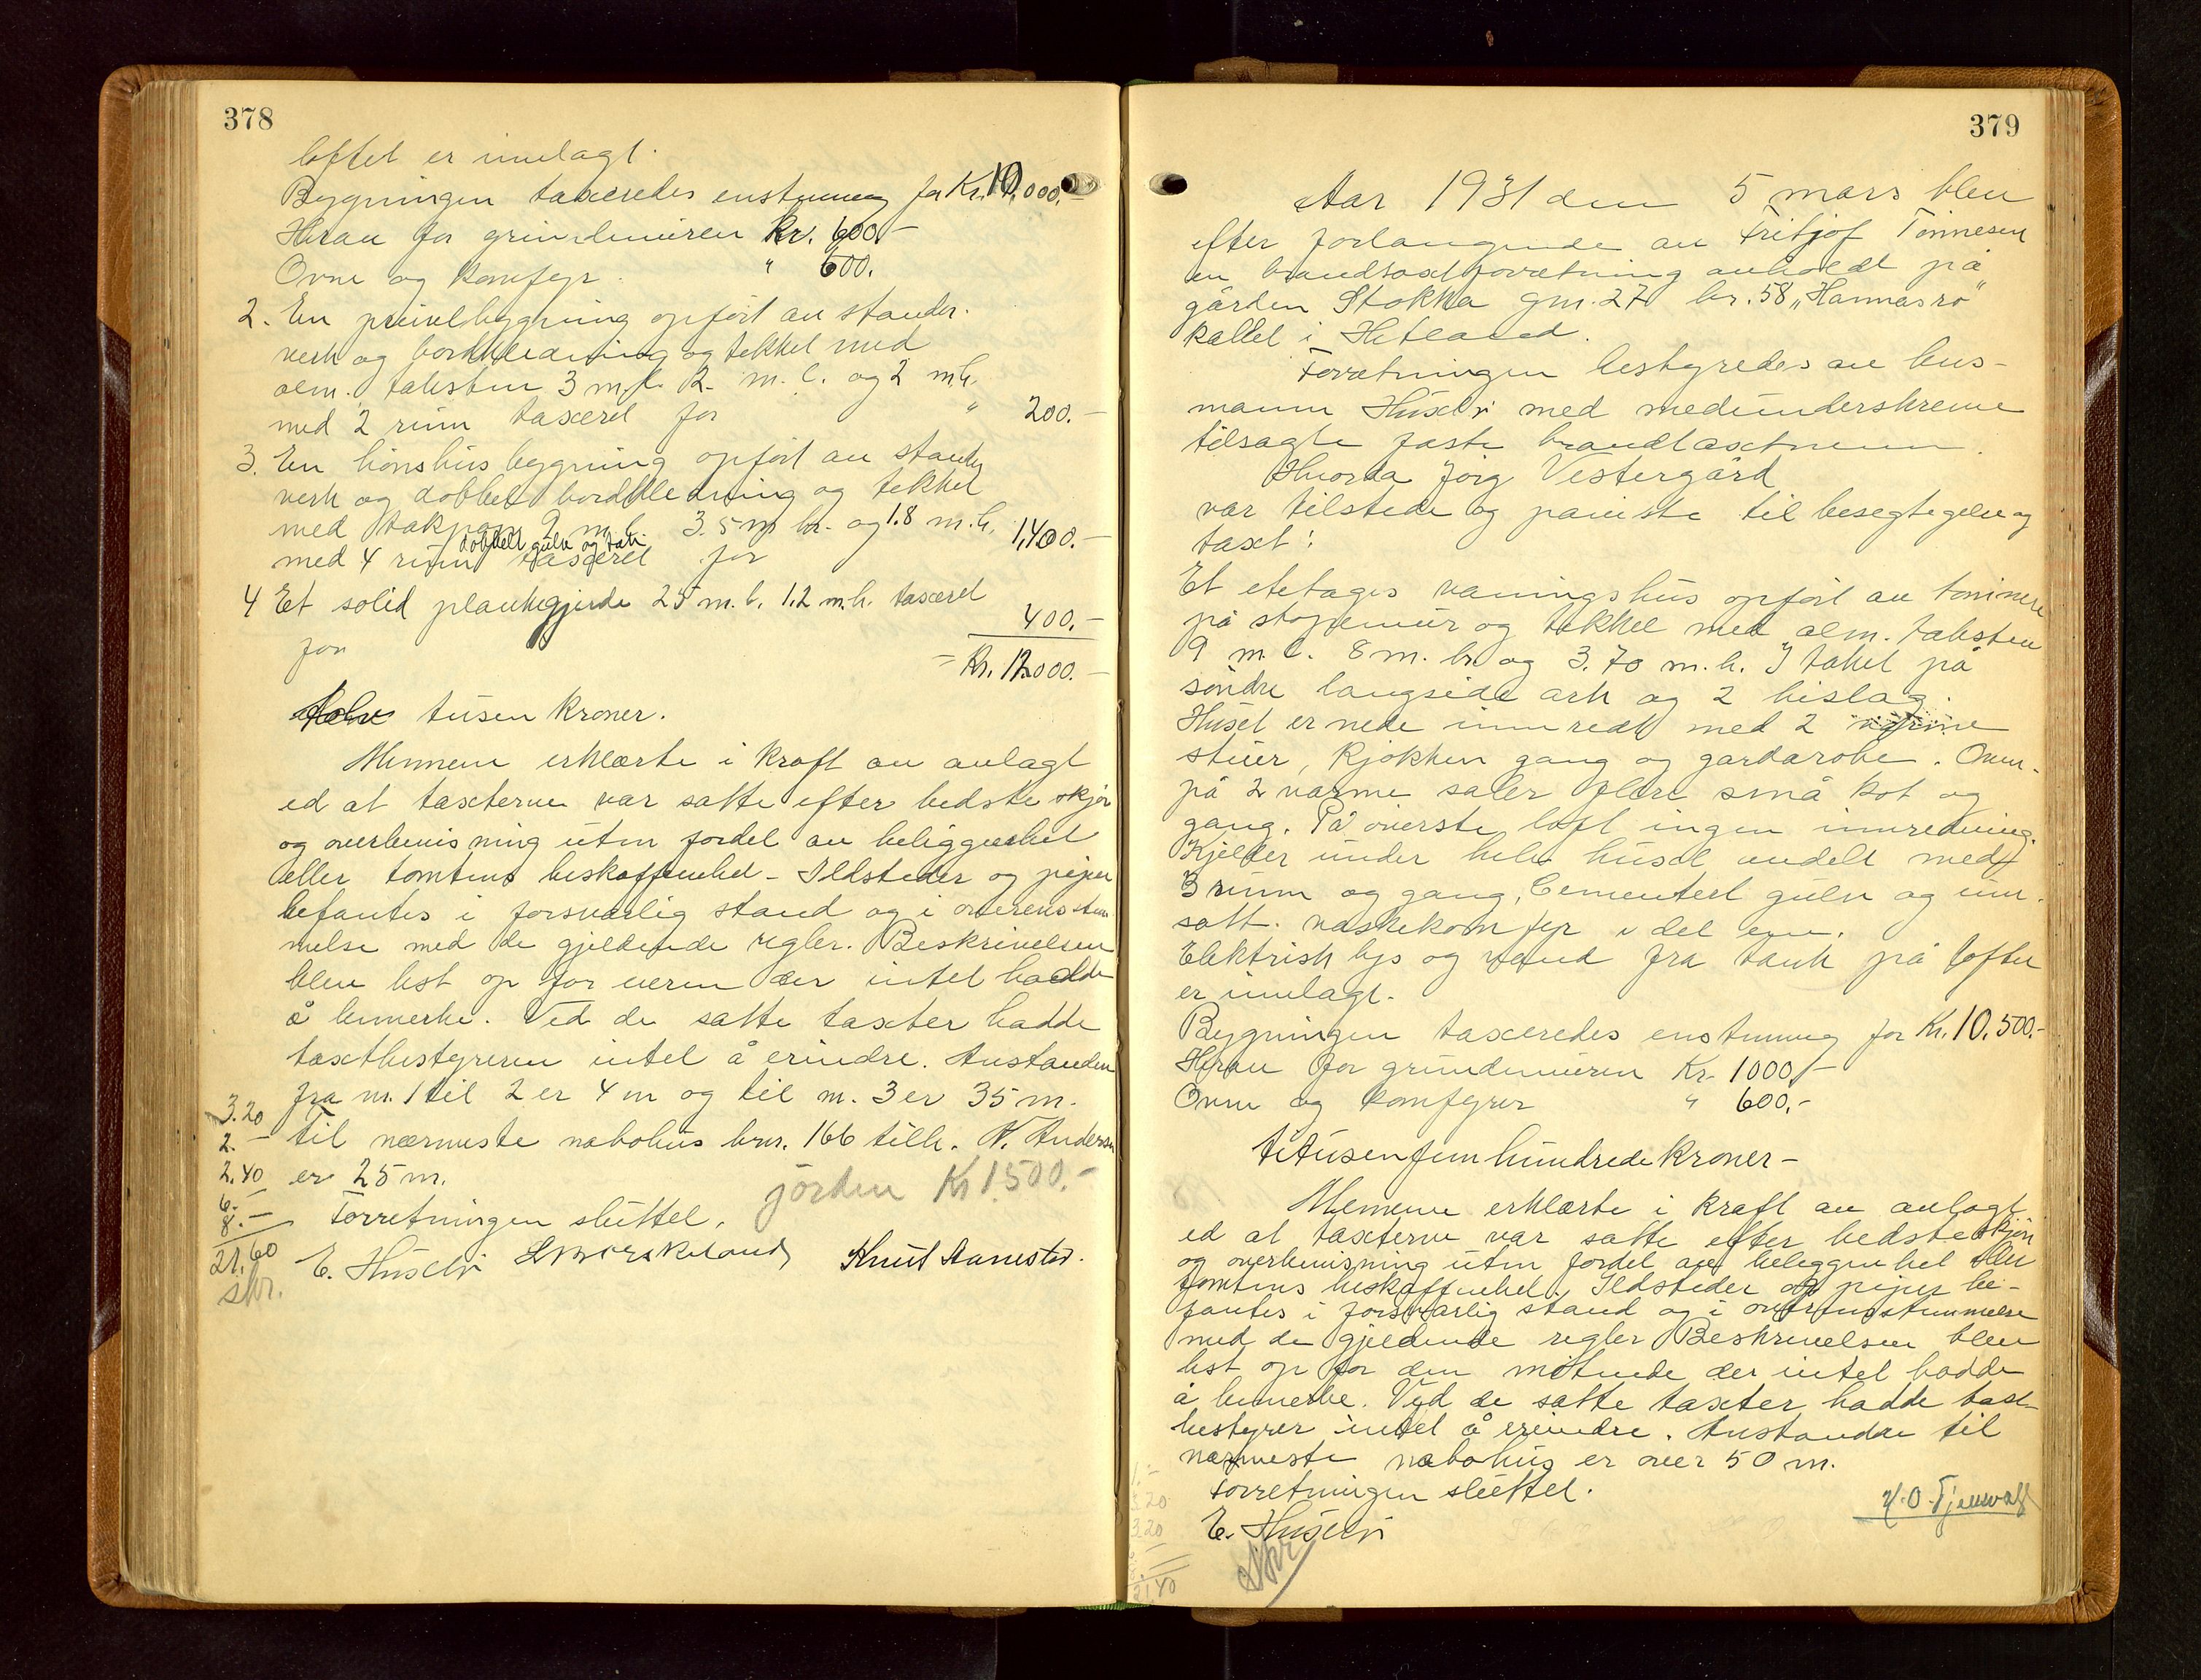 378
loftet er innlagt.
Bygningen taxeredes enstemmig for Kr. 10,000.-
Herav for grundmuren Kr. 600.-
Ovne og komfyr " 600.
2. En privelbygning opført av stender-
verk og bordkledning og tekket med
alm. taksten 3 m.l. 2. m. b. og 2 m.h.
med 2 rum taxeret for " 200.-
3. En hönshusbygning opført av stender
verk og dobbel bordkledning og tekket
med takpap 9 m. l. 3.5 m br. og 1.8 m.h.
med 4 rum dobbelt gulv og tak taxeret for 1,400.-
4 Et solid plankegjerde 25 m.l. 1.2 m.h. taxeret
for 400.-
= Kr. 12.000.-
tolv tusen kroner.
Mennene erklærte i kraft av avlagt
ed at taxterne var satte efter bedste skjön
og overbevisning uten fordel av beliggenhet
eller tomtens beskaffenhet - Ildsteder og piper
befantes i forsvarlig stand og i overensstem
melse med de gjeldende regler. Beskrivelsen
blev lest op for eieren der intet hadde
å bemerke. Ved de satte taxter hadde
taxtbestyreren intet å erindre. Avstanden
fra nr. 1 til 2 er 4 m og til nr. 3 er 35 m.
til nærmeste nabohus brnr. 166 tilh. N. Andersen
er 25 m.
jorden Kr 1.500.-
Forretningen sluttet.
E. Husebø Knut Aanestad.
3.20
2.-
2.40
6.-
8.-
21.60
skr.
379
Aar 1931 den 5 mars blev
efter forlangende av Fritjof Tönnesen
en brandtaxtforretning avholdt på
gården Stokka gnr. 27 br. 58 "Hannasro"
kallet i Hetland.
Forretningen bestyredes av lens-
mann Husebø med medunderskrevne
tilsagte faste brandtaxtmenn.
Hvorda Jörg Vestergård
var tilstede og paaviste til besegtigelse og
taxt:
Et etetages vaningshus opført av tömmer
på stöpemur og tekket med alm. taksten
9 m. l. 8 m. br og 3.70 m. h. I taket på
söndre langside ark og 2 bislag.
Huset er nede innredt med 2 varme
stuer, kjökken gang og gardarobe. Oven-
på 2 varme saler flere små kot og
gang. På överste loft ingen innredning.
Kjelder under hele huset avdelt med
3 rumm og gang, Cementert gulv og inn-
satt vaskekomfyr i det ene.
Elektrisk lys og vand fra tank på loftet
er innlagt.
Bygningen taxeredes enstemmig for Kr. 10.500.-
Herav for grundmuren Kr. 1000.-
Ovne og komfyrer " 600.-
titusenfemhundrede kroner -
Mennene erklærte i kraft av avlagt
ed at taxterne var satte efter bedste skjön
og overbevisning uten fordel av beleggenhet eller
tomtens beskaffenhet. Ildsteder og piper be-
fantes i forsvarlig stand og i overensstemmelse
med de gjeldende regler Beskrivelsen blev
lest op for den mötende der intet hadde
å bemerke. Ved de satte taxter hadde taxt-
bestyrer intet å erindre. Avstanden til
nærmeste nabohus er over 50 m.
Forretningen sluttet.
E. Husebø
skr